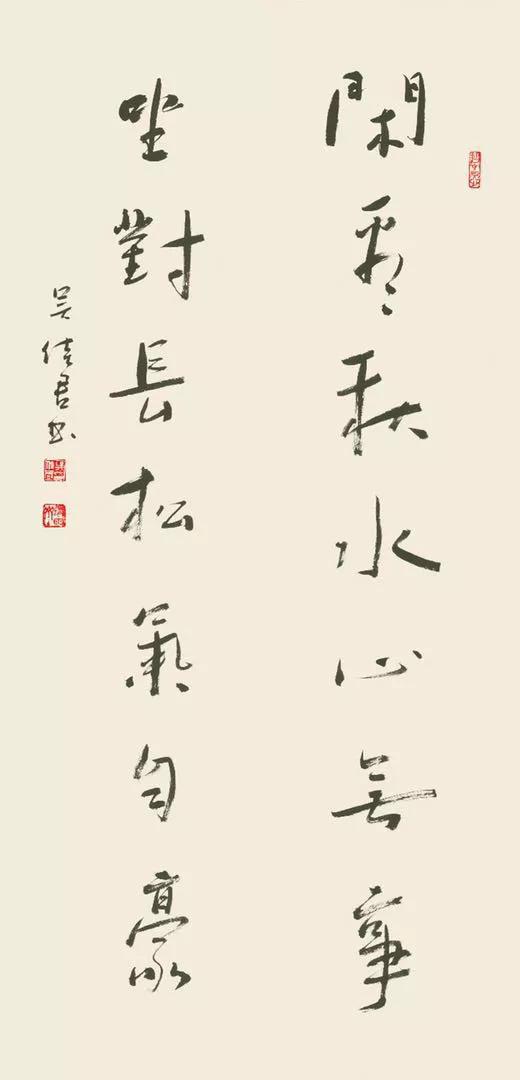 閑看秋水心無事
坐對長松氣自豪
吴佳君书